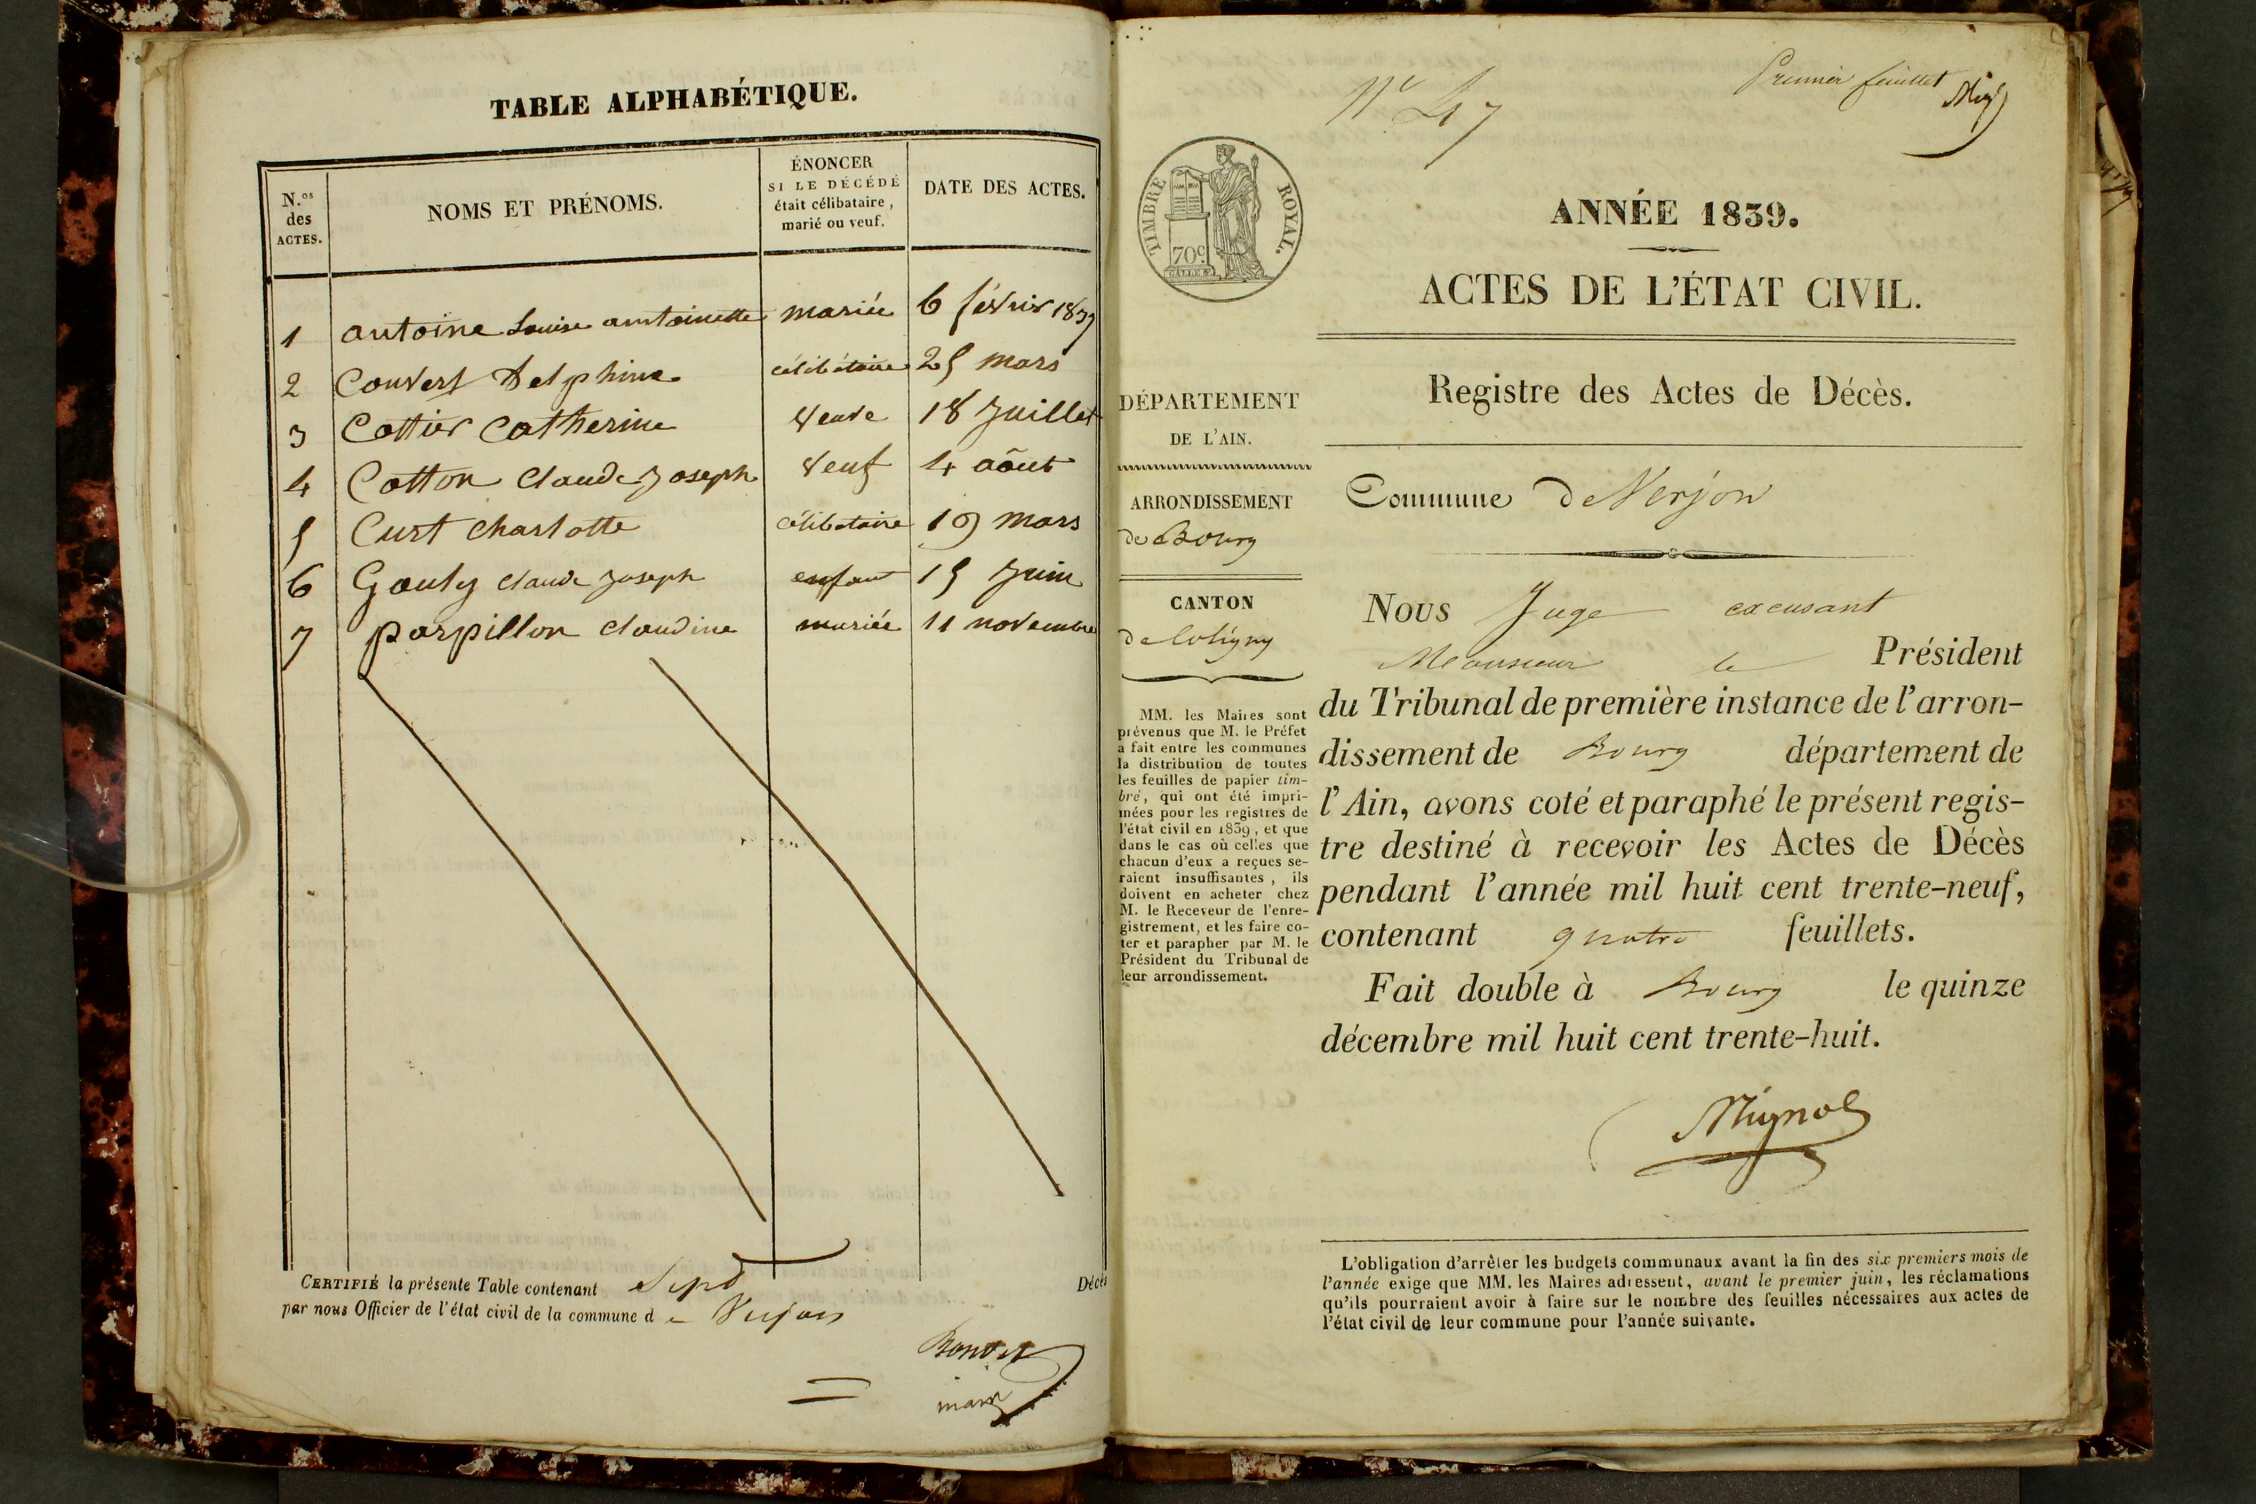 TABLE ALPHABÉTIQUE.
N.os des ACTES.
NOMS ET PRÉNOMS.
ÉNONCER SI LE DÉCÉDÉ était célibataire, marié ou veuf.
DATE DES ACTES.
1 antoine Louise antoinette mariée 6 février 1839
2 Convert Delphine célibataire 25 mars
3 Cottier Catherine veuve 18 Juillet
4 Cotton Claude Joseph veuf 4 aôut
5 Curt charlotte célibataire 19 mars
6 Gouly claude Joseph enfant 15 Juin
7 parpillon claudine mariée 11 novembre
CERTIFIÉ la présente Table contenant Sept Décès
par nous Officier de l'état civil de la commune de Verjon
maire
N° 47
Premier feuillet
TIMBRE ROYAL.
70c
ANNÉE 1839.
ACTES DE L'ÉTAT CIVIL.
Registre des Actes de Décès.
DÉPARTEMENT
DE L'AIN.
ARRONDISSEMENT
de Bourg
CANTON
de Coligny
MM. les Maires sont
prévenus que M. le Préfet
a fait entre les communes
la distribution de toutes
les feuilles de papier tim-
bré, qui ont été impri-
mées pour les registres de
l'état civil en 1839, et que
dans le cas où celles que
chacun d'eux a reçues se-
raient insuffisantes, ils
doivent en acheter chez
M. le Receveur de l'enre-
gistrement, et les faire co-
ter et parapher par M. le
Président du Tribunal de
leur arrondissement.
Commune de Verjon
Nous Juge excusant
Monsieur le Président
du Tribunal de première instance de l'arron-
dissement de Bourg département de
l'Ain, avons coté et paraphé le présent regis-
tre destiné à recevoir les Actes de Décès
pendant l'année mil huit cent trente-neuf,
contenant quatre feuillets.
Fait double à Bourg le quinze
décembre mil huit cent trente-huit.
L'obligation d'arrêter les budgets communaux avant la fin des six premiers mois de
l'année exige que MM. les Maires adressent, avant le premier juin, les réclamations
qu'ils pourraient avoir à faire sur le nombre des feuilles nécessaires aux actes de
l'état civil de leur commune pour l'année suivante.